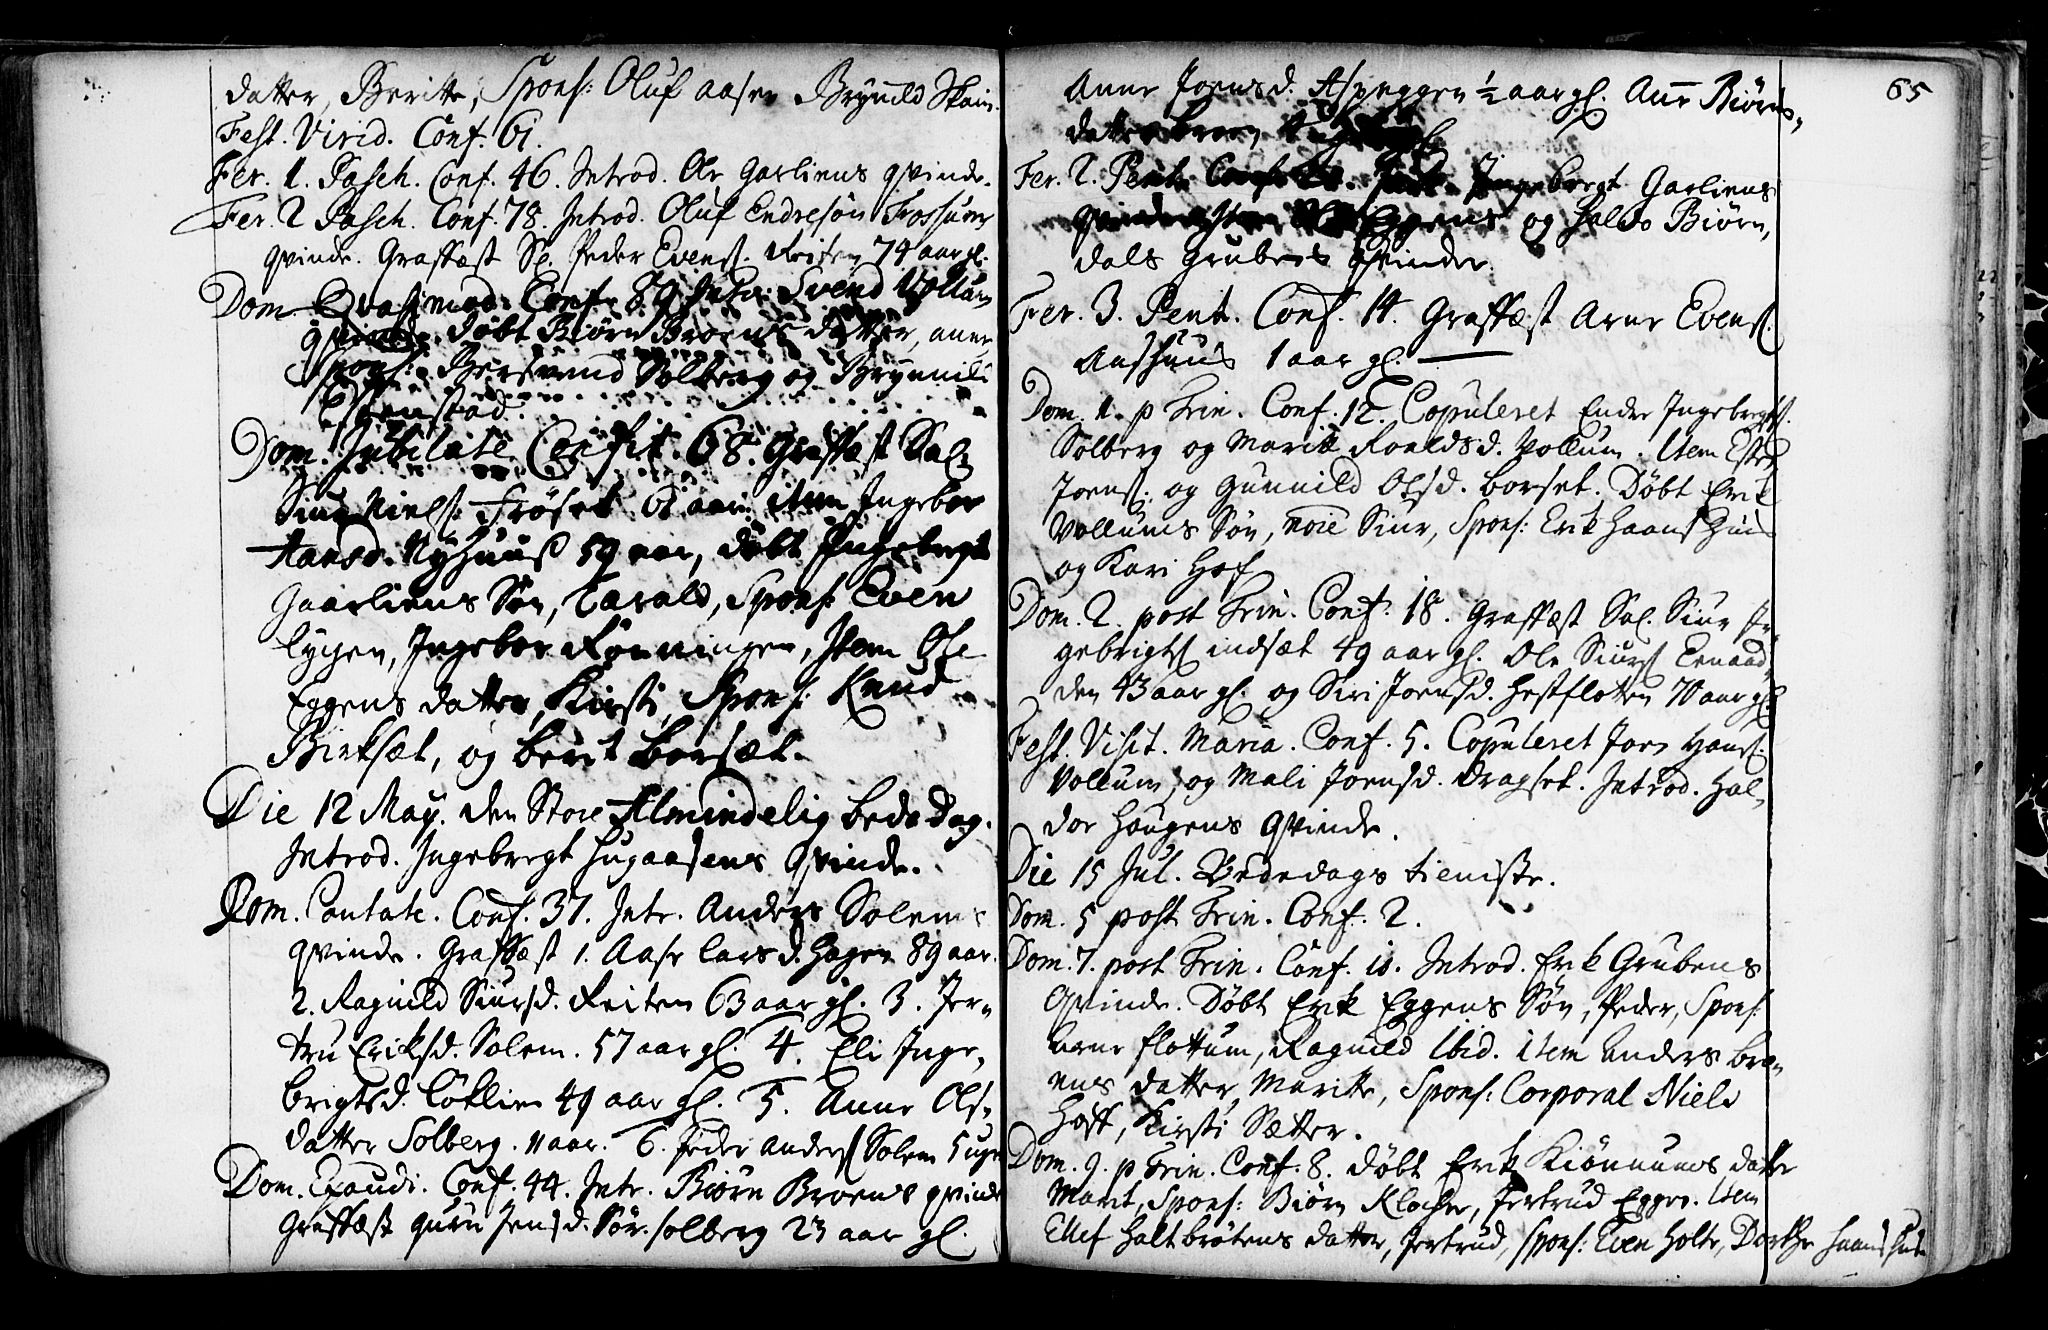 datter, Beritte, Spons: Oluf aasen Brynild Skein.
Fest. Virid. Conf. 61.
Fer. 1. Pasch. Conf. 46. Introd. Ole Garliens qvinde.
Fer. 2 Pasch. Conf. 78. Introd. Oluf Endresøn Fossums
qvinde. Graffæst Sl. Peder Evens. Reiten 74 aar gl.
Dom Qvasimod. Conf. 89 Intr. Svend Vollum
qvinde. Døbt Biørn Broens datter, anne
Spons: Bersvend Solberg og Brynnild
Estenstad.
Dom. Jubilate. Confit. 68. Graffæst Sal.
Siur Niels: Frøset 61 aar. item Ingebor
Hansd. Nyhuus 59 aar, døbt Ingebregt
Gaarliens Søn, Tarald, Spons: Even
lygen, Ingebor Rønningen, Item Ole
Eggens datter, Kirsti, Spons: Knud
Birksæt, og berit borsæt.
Die 12 May. den Store Almindelig bede Dag.
Introd. Ingebregt hugaasens qvinde.
Dom. Cantate. Conf. 37. Intr. Anders Solems
qvinde. Graffæst 1. Aase Larsd. Hagen 89 aar.
2. Ragnild Siursd. Reiten 63 aar gl. 3. Jer-
tru Eriksd. Solem. 57 aar gl. 4. Eli Inge,
brigtsd. Løklien 49 aar gl. 5. Anne Ols,
datter Solberg. 11 aar. 6. Peder Anders Solem 5 uge
Dom. Exaudi. Conf. 44. Intr. Biørn Broens qvinde
Graffæst guru Jensd. Sør. solberg 23 aar gl.
65
Anne Joensd. Aspeggen ½ aar gl. Anne Biørns,
datter broen
Fer. 2. Pent. Conf. Ingebregt Garliens
Eggens og Haldo Biørn,
dals Grubens qvinder.
Fer. 3. Pent. Conf. 14. Graffæst Arne Evens.
Aashuus 1 aar gl.
Dom. 1. p Trin. Conf. 12. Copuleret Endre Ingebregts.
Solberg og Maritte Roaldsd. Vollum. Item Esten
Joens. og Gunnild Olsd. borset. Døbt Erik
Vollums Søn, noie Siur, Spons: Erik Haanshuus
og Kari Hof
Dom. 2. post Trin. Conf. 18. Graffæst Sal. Siur In,
gebrigts indsæt 49 aar gl. Ole Siurs Eenaad,
den 43 aar gl. og Siri Joensd. Hestflotten 70 aar gl.
Fest. Visit. Maria. Conf. 5. Copuleret Joen Hans.
Vollum, og Mali Joensd. Dragset. Introd. Hal,
dor Haugens qvinde.
Die 15 Jul. Bededags tieniste.
Dom. 5 post Trin. Conf. 2.
Dom. 7. post Trin. Conf. 10. Introd. Erik Grubens
Qvinde. Døbt Erik Eggens Søn, Peder, Spons:
Arne flottum, Ragnild Ibid. item Anders bro,
ens datter, Maritte, Spons: Corporal Niels
Hoff, Kirsti Sætter.
Dom. 9. p Trin. Conf. 8. døbt Erik Kiønnums datter
Marit, Spons: Biørn Klocher, Jertrud Eggen. Item
Ellef Haltbrötens datter, Jertrud, Spons: Even Holte, Dorthe Haanshuus